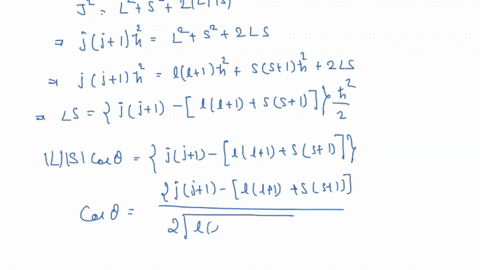 J² = L² + S² + 2|L||S|
⇒ j(j+1)ħ² = L² + S² + 2LS
⇒ j(j+1)ħ² = l(l+1)ħ² + s(s+1)ħ² + 2LS
⇒ LS = {j(j+1) - [l(l+1) + s(s+1)]} ħ²/2
|L||S| Cos θ = {j(j+1) - [l(l+1) + s(s+1)]}
Cos θ = {j(j+1) - [l(l+1) + s(s+1)]} / 2√l(